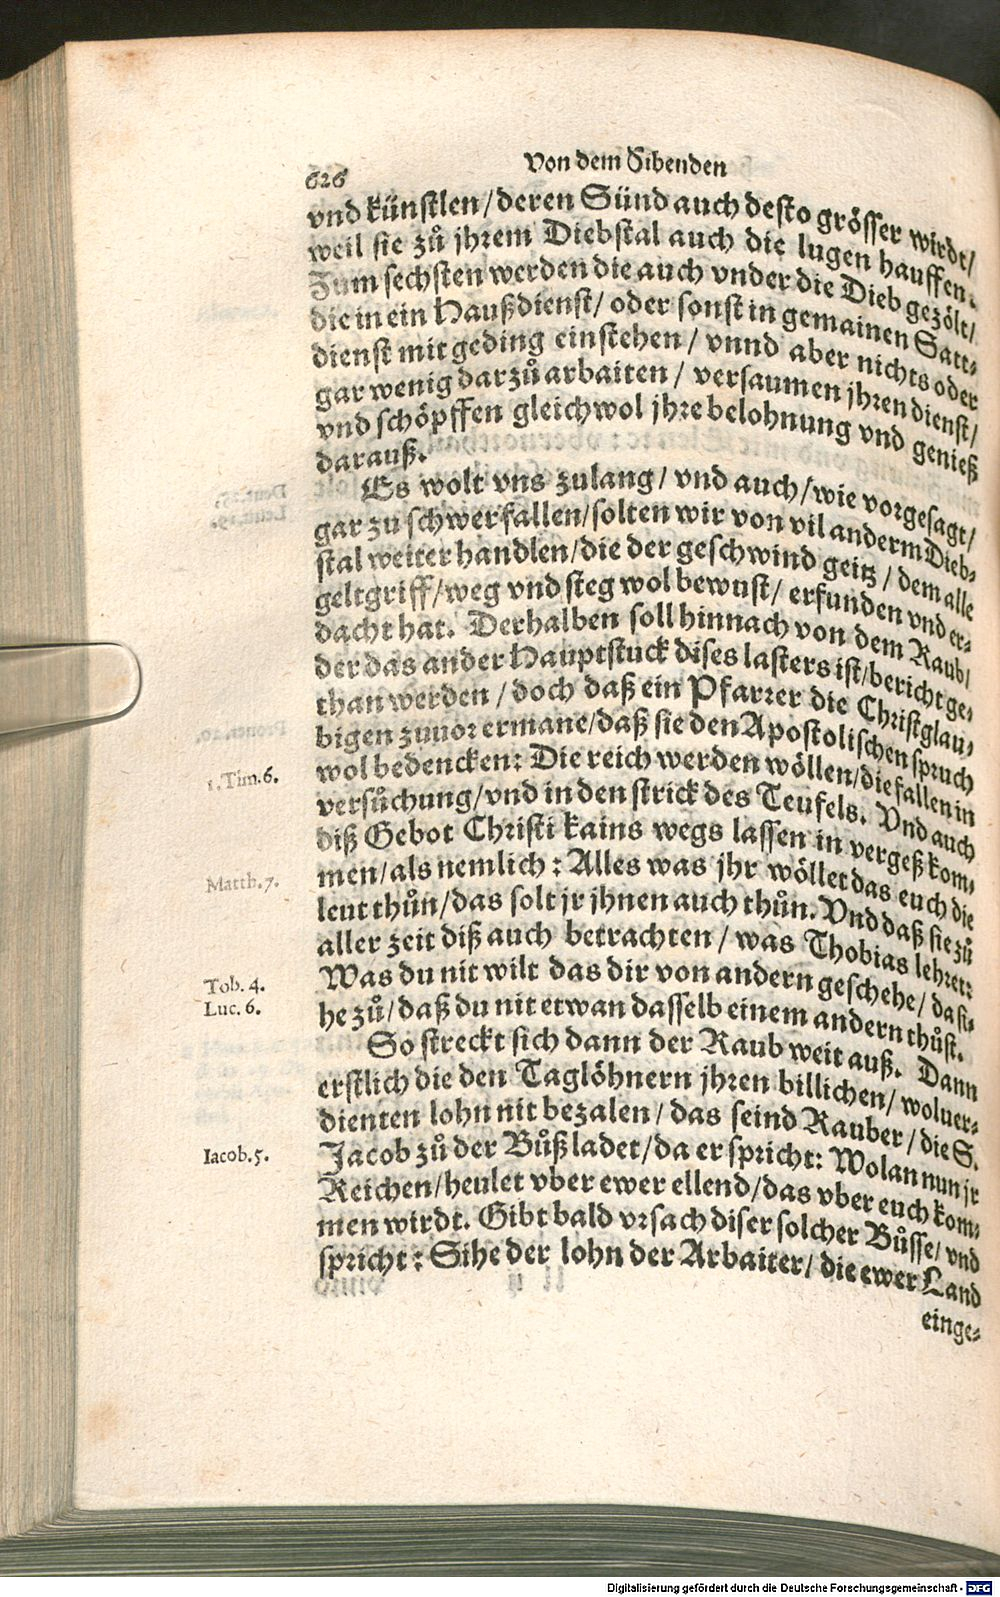 626
Von dem Sibenden
vnd künstlen/deren Sünd auch desto grösser wirdt/
weil sie zů jhrem Diebstal auch die lugen hauffen.
Zum sechsten werden die auch vnder die Dieb gezölt/
die in ein Haußdienst/ oder sonst in gemainen Satt⸗
dienst mit geding einstehen/ vnnd aber nichts oder
gar wenig darzů arbaiten/ versaumen jhren dienst/
vnd schöpffen gleichwol jhre belohnung vnd genieß
darauß.
Es wolt vns zulang/ vnd auch/wie vorgesagt/
gar zu schwer fallen/solten wir von vil anderm Dieb⸗
stal weiter handlen/die der geschwind geitz/ dem alle
geltgriff/weg vnd steg wol bewust/ erfunden vnd er⸗
dacht hat. Derhalben soll hinnach von dem Raub/
der das ander Hauptstuck dises lasters ist/bericht ge⸗
than werden/doch daß ein Pfarrer die Christglau⸗
bigen zuuor ermane/daß sie den Apostolischen spruch
wol bedencken: Die reich werden wöllen/die fallen in
1.Tim.6.
versůchung/vnd in den strick des Teufels. Vnd auch
diß Gebot Christi kains wegs lassen in vergeß kom⸗
men/als nemlich: Alles was jhr wöllet das euch die
Matth.7.
leut thůn/das solt jr jhnen auch thůn. Vnd daß sie zů
aller zeit diß auch betrachten/ was Thobias lehret:
Was du nit wilt das dir von andern geschehe/ da si⸗
Tob. 4.
he zů/daß du nit etwan dasselb einem andern thůst.
Luc. 6.
So streckt sich dann der Raub weit auß. Dann
erstlich die den Taglöhnern jhren billichen/ woluer⸗
dienten lohn nit bezalen/ das seind Rauber/ die S.
Jacob zů der Bůß ladet/da er spricht: Wolan nun jr
Iacob.5.
Reichen/heulet vber ewer ellend/das vber euch kom⸗
men wirdt. Gibt bald vrsach diser solcher Bůsse/ vnd
spricht: Sihe der lohn der Arbaiter/ die ewer Land
einge⸗
Digitalisierung gefördert durch die Deutsche Forschungsgemeinschaft - DFG